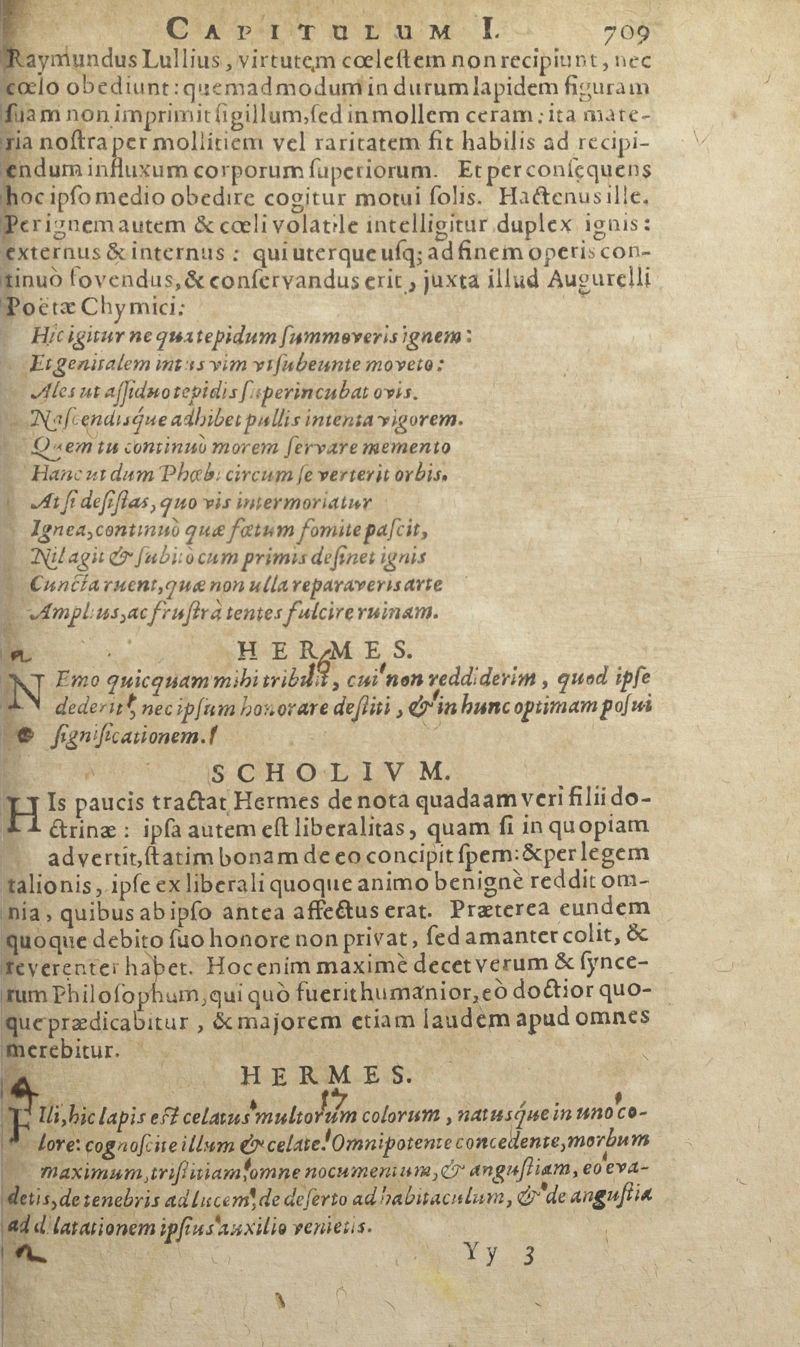 CAPITULUM I. 709
Raymundus Lullius, virtutem cœleſtem non recipiunt, nec
cœlo obediunt: quemadmodum in durum lapidem figuram
ſuam non imprimit ſigillum, ſed in mollem ceram; ita mate-
ria noſtra per mollitiem vel raritatem fit habilis ad recipi-
endum influxum corporum ſuperiorum. Et per conſequens
hoc ipſo medio obedire cogitur motui ſolis. Hactenus ille.
Per ignem autem & cœli volatile intelligitur duplex ignis:
externus & internus: qui uterque uſq; ad finem operis con-
tinuò fovendus, & conſervandus erit, juxta illud Augurelli
Poëtæ Chymici:
Hic igitur ne quæ tepidum ſummoveris ignem:
Et genitalem intus vim vt ſubeunte moveto:
Ales ut aſſiduo tepidis ſuperincubat ovis.
Naſcendisque adhibet pullis intenta vigorem.
Quem tu continuò morem ſervare memento
Hanc ut dum Phœbi circum ſe verterit orbis.
At ſi deſiſtas, quo vis intermoriatur
Ignea, continuò quæ fœtum fomite paſcit,
Nil agit & ſubitò cum primis deſinet ignis
Cuncta ruent, quæ non ulla reparaveris arte
Amplius, ac fruſtrà tentes fulcire ruinam.
HERMES.
NEmo quicquam mihi tribuit, cui non reddiderim, quod ipſe
dederit, nec ipſum honorare deſtiti, & in hunc optimam poſui
ſignificationem.
SCHOLIVM.
HIs paucis tractat Hermes de nota quadaam veri filii do-
ctrinæ: ipſa autem eſt liberalitas, quam ſi in quopiam
advertit, ſtatim bonam de eo concipit ſpem: & per legem
talionis, ipſe ex liberali quoque animo benignè reddit om-
nia, quibus ab ipſo antea affectus erat. Præterea eundem
quoque debito ſuo honore non privat, ſed amanter colit, &
reverenter habet. Hoc enim maximè decet verum & ſynce-
rum Philoſophum, qui quò fuerit humanior, eò doctior quo-
que prædicabitur, & majorem etiam laudem apud omnes
merebitur.
HERMES.
4
17
FIli, hic lapis eſt celatus multorum colorum, natusque in uno co-
lore: cognoſcite illum & celate. Omnipotente concedente, morbum
maximum, triſtitiam, omne nocumentum, & anguſtiam, eo eva-
detis, de tenebris ad lucem, de deſerto ad habitaculum, & de anguſtia
ad dilatationem ipſius auxilio venietis.
Yy 3